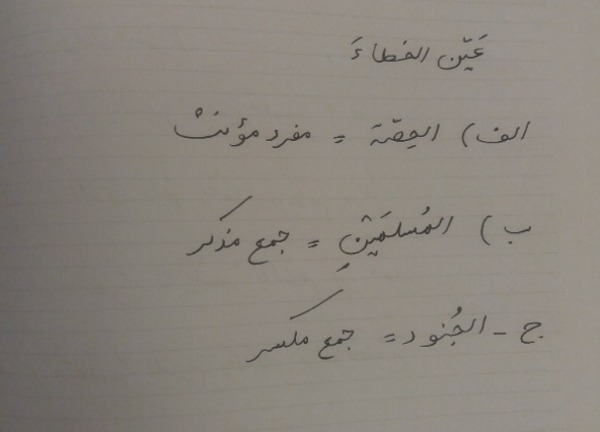 عَيّن الخطاءَ
الف) الحِصّة = مفرد مؤنث
ب) المُسلمَيْنِ = جمع مذكر
ج - الجُنود = جمع مكسر